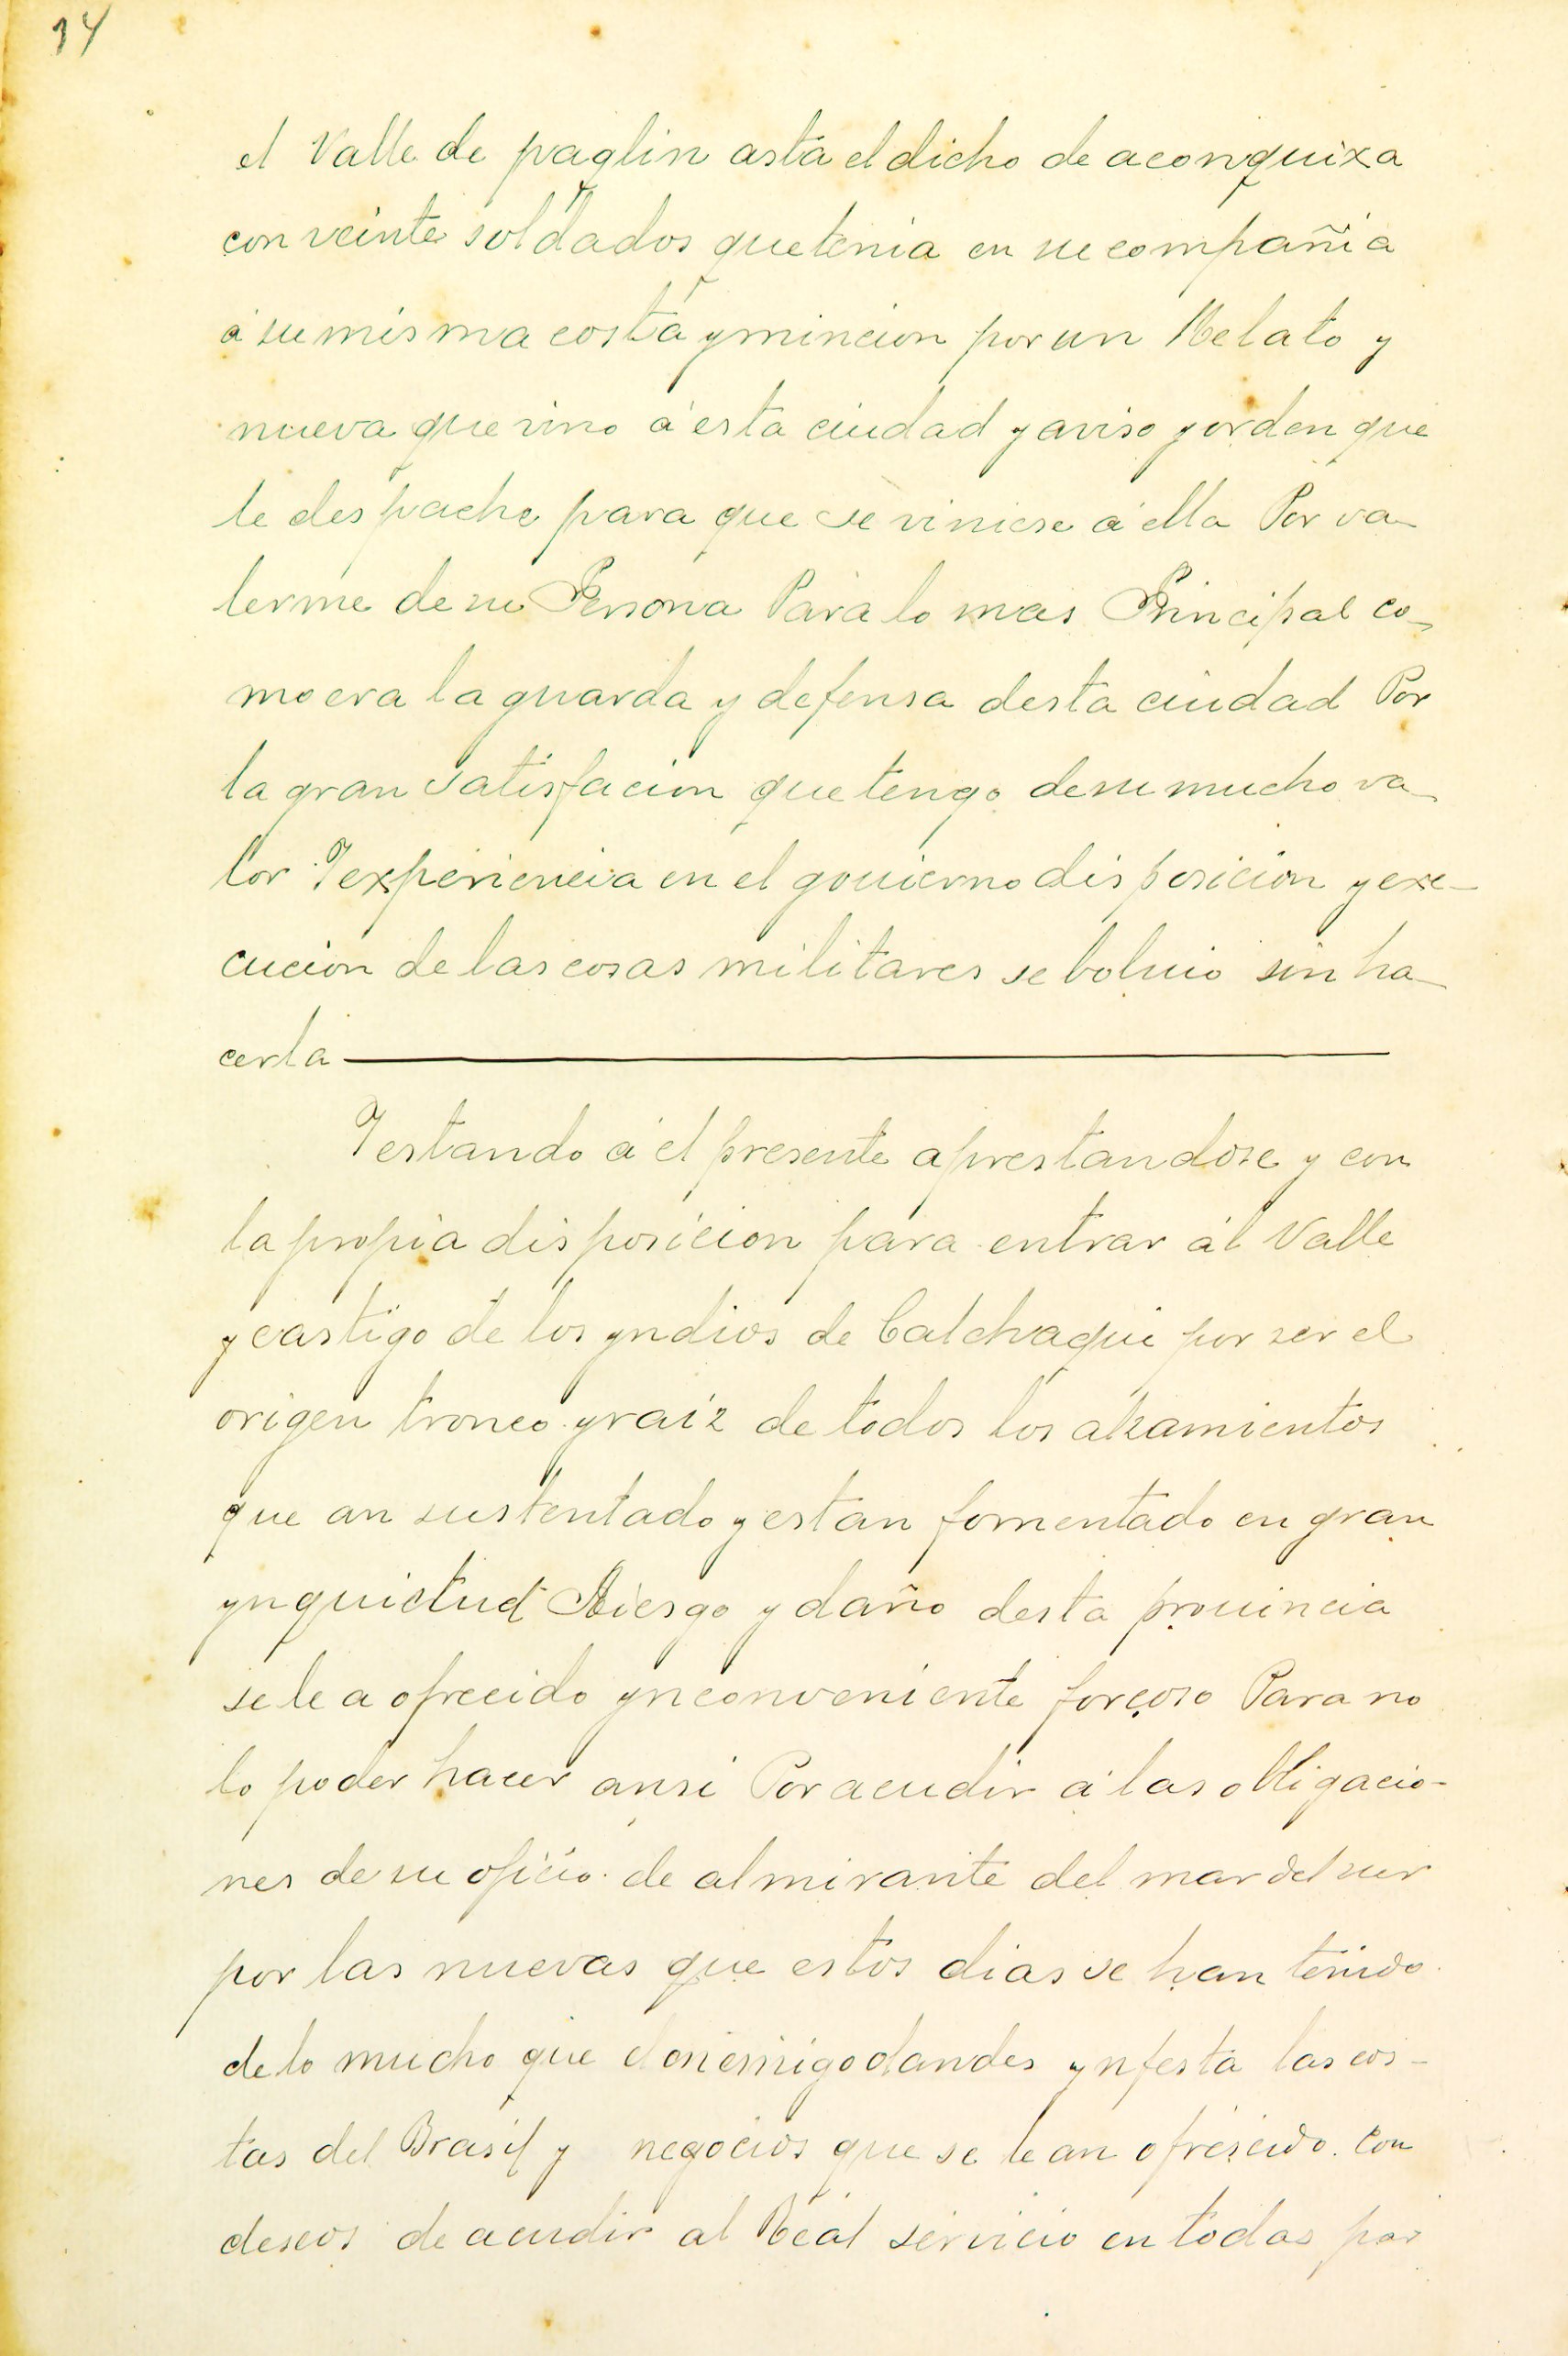 14
el Valle de paglin asta el dicho de aconquixa
con veinte soldados que tenia en su compañia
á su misma costa y mincion por un Relato y
nueva que vino á esta ciudad y aviso y orden que
le despache para que se viniese á ella Por va-
lerme de su Persona Para lo mas Principal co-
mo era la guarda y defensa desta ciudad Por
la gran satisfacion que tengo de su mucho va-
lor Y experiencia en el gouierno disposicion y exe-
cucion de las cosas militares se boluio sin ha-
cerla
Y estando á el presente aprestandose y con
la propia disposicion para entrar al Valle
y castigo de los yndios de Calchaqui por ser el
origen tronco y raiz de todos los alzamientos
que an sustentado y estan fomentado en gran
ynquietud Riesgo y daño desta prouincia
se le a ofrecido ynconveniente forçoso Para no
lo poder hacer ansi Por acudir á las obligacio-
nes de su oficio de almirante del mar del sur
por las nuevas que estos dias se han tenido
de lo mucho que el onemigo olandes ynfesta las cos-
tas del Brasil y negocios que se le an ofrescido con
deseos de acudir al Real servicio en todas par